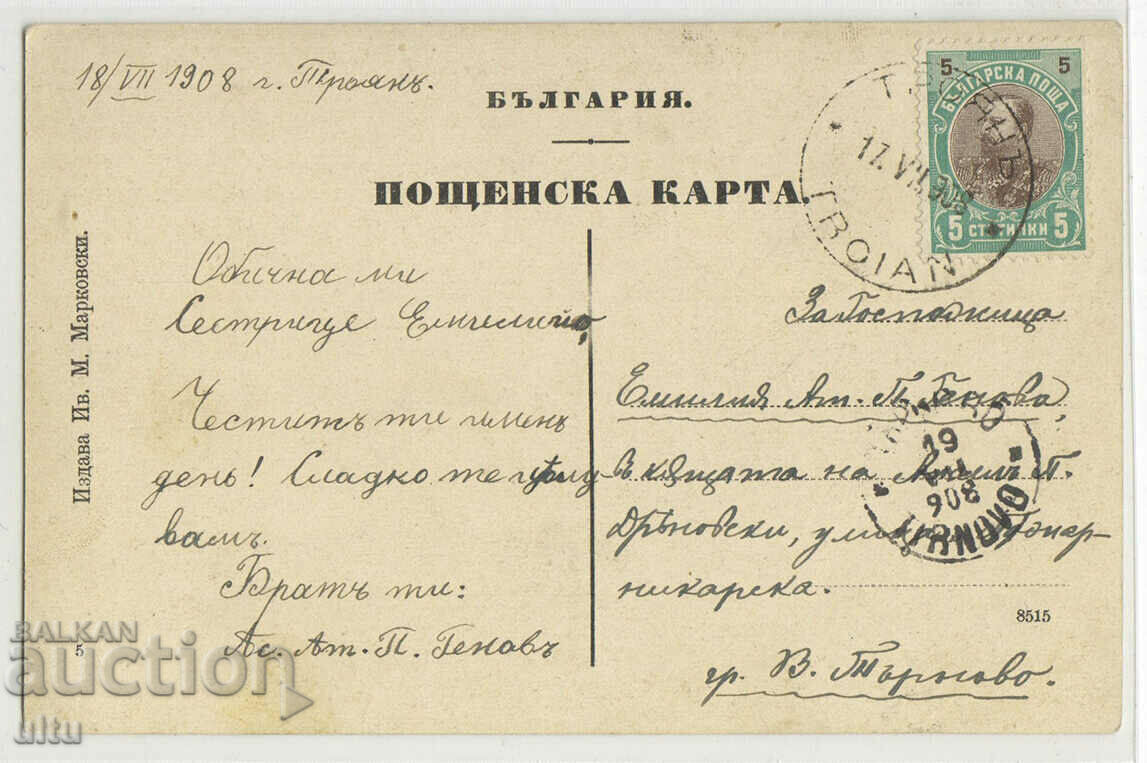 18/VII 1908 г. Троянъ.
БЪЛГАРИЯ.
ПОЩЕНСКА КАРТА.
5 5
БЪЛГАРСКА ПОЩА
5 СТОТИНКИ 5
ТРОЯНЪ
17.VII.908
TROIAN
Издава Ив. М. Марковски.
Обична ми
Сестрице
Честитъ ти именъ
день! Сладко те цѣлу
вамъ.
Братъ ти:
Ас. Ат. П. Геновъ
За Госпожица
Емилия Ат. П. Генова,
въ кѫщата на П.
Дрѣновски, улица
никарска.
гр. В. Търново.
19
VII
908
TIRNOVO
8515
5
BALKAN
auction
ultu